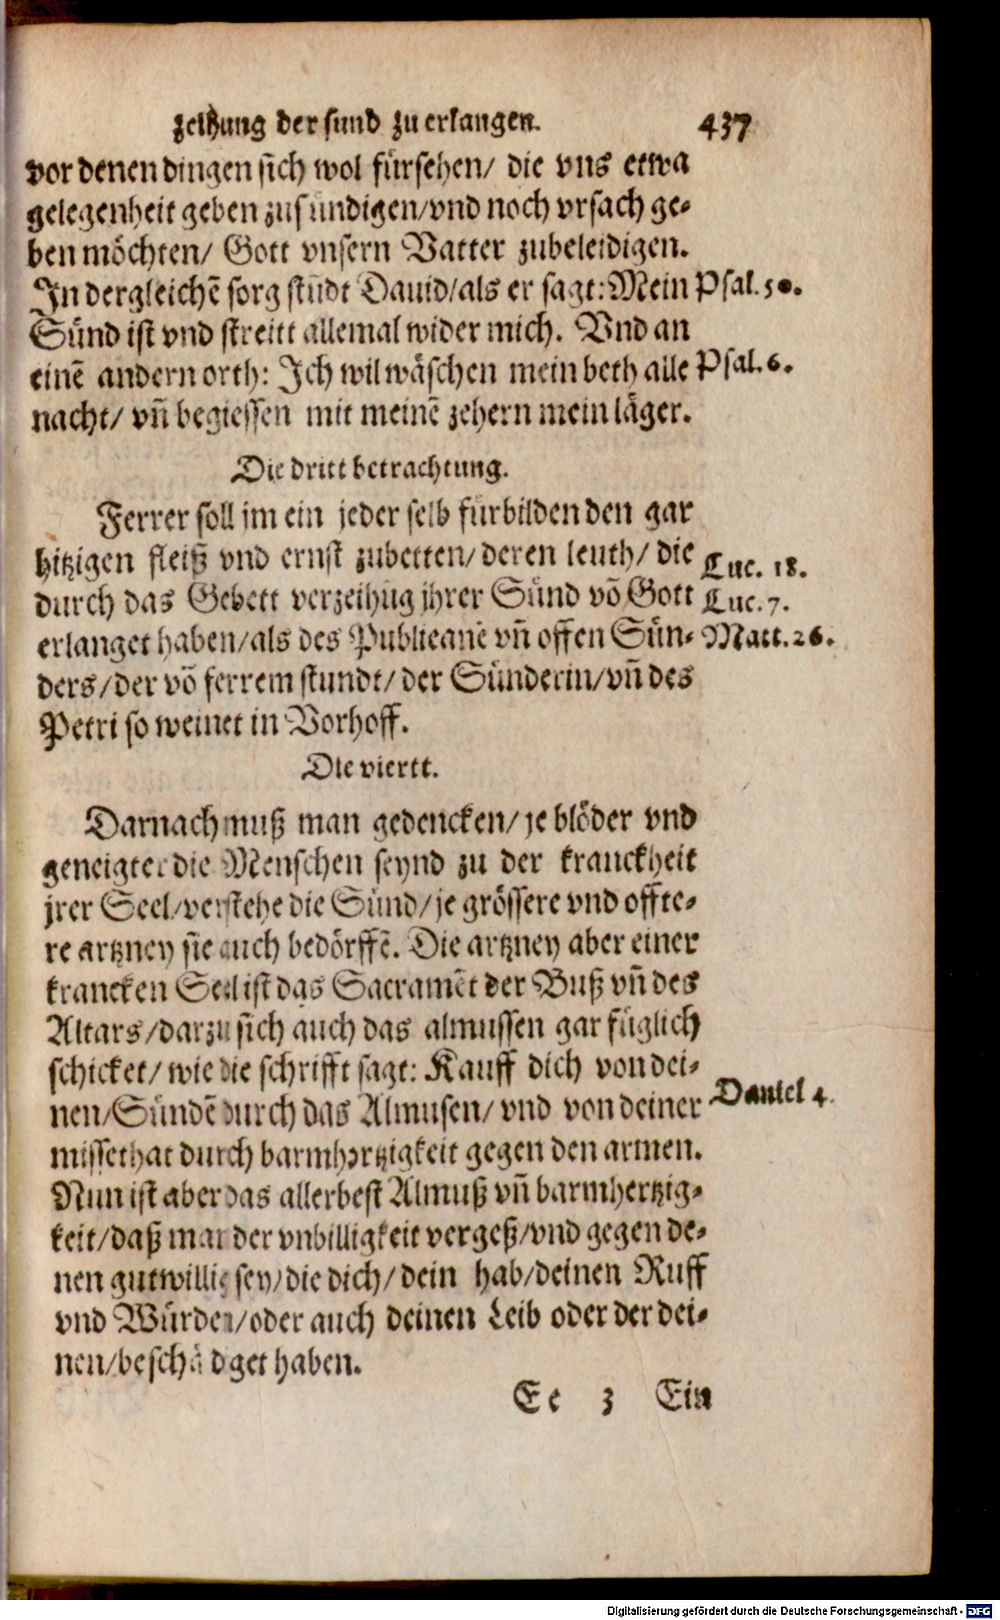 zeihung der sund zu erlangen. 437
vor denen dingen sich wol fürsehen/ die vns etwa
gelegenheit geben zusündigen/vnd noch vrsach ge-
ben möchten/ Gott vnsern Vatter zubeleidigen.
In dergleichē sorg stůdt Dauid/als er sagt: Mein Psal. 50.
Sünd ist vnd streitt allemal wider mich. Vnd an
einē andern orth: Ich wil wäschen mein beth alle Psal. 6.
nacht/ vñ begiessen mit meinē zehern mein läger.
Die dritt betrachtung.
Ferrer soll jm ein jeder selb fürbilden den gar
hitzigen fleiß vnd ernst zubetten/ deren leuth/ die Luc. 18.
durch das Gebett verzeihūg jhrer Sünd vō Gott Luc. 7.
erlanget haben/als des Publicanē vñ offen Sün- Matt. 26.
ders/der vō ferrem stundt/ der Sünderin/vñ des
Petri so weinet in Vorhoff.
Die viertt.
Darnach muß man gedencken/ je blöder vnd
geneigter die Menschen seynd zu der kranckheit
jrer Seel/verstehe die Sünd/je grössere vnd offte-
re artzney sie auch bedörffē. Die artzney aber einer
krancken Seel ist das Sacramēt der Buß vñ des
Altars/darzu sich auch das almussen gar füglich
schicket/ wie die schrifft sagt: Kauff dich von dei-
nen/Sündē durch das Almusen/ vnd von deiner Daniel 4.
missethat durch barmhertzigkeit gegen den armen.
Nun ist aber das allerbest Almuß vñ barmhertzig-
keit/daß man der vnbilligkeit vergeß/vnd gegen de-
nen gutwillig sey/die dich/dein hab/deinen Ruff
vnd Würden/oder auch deinen Leib oder der dei-
nen/beschädget haben.
Ee 3 Ein
Digitalisierung gefördert durch die Deutsche Forschungsgemeinschaft - DFG